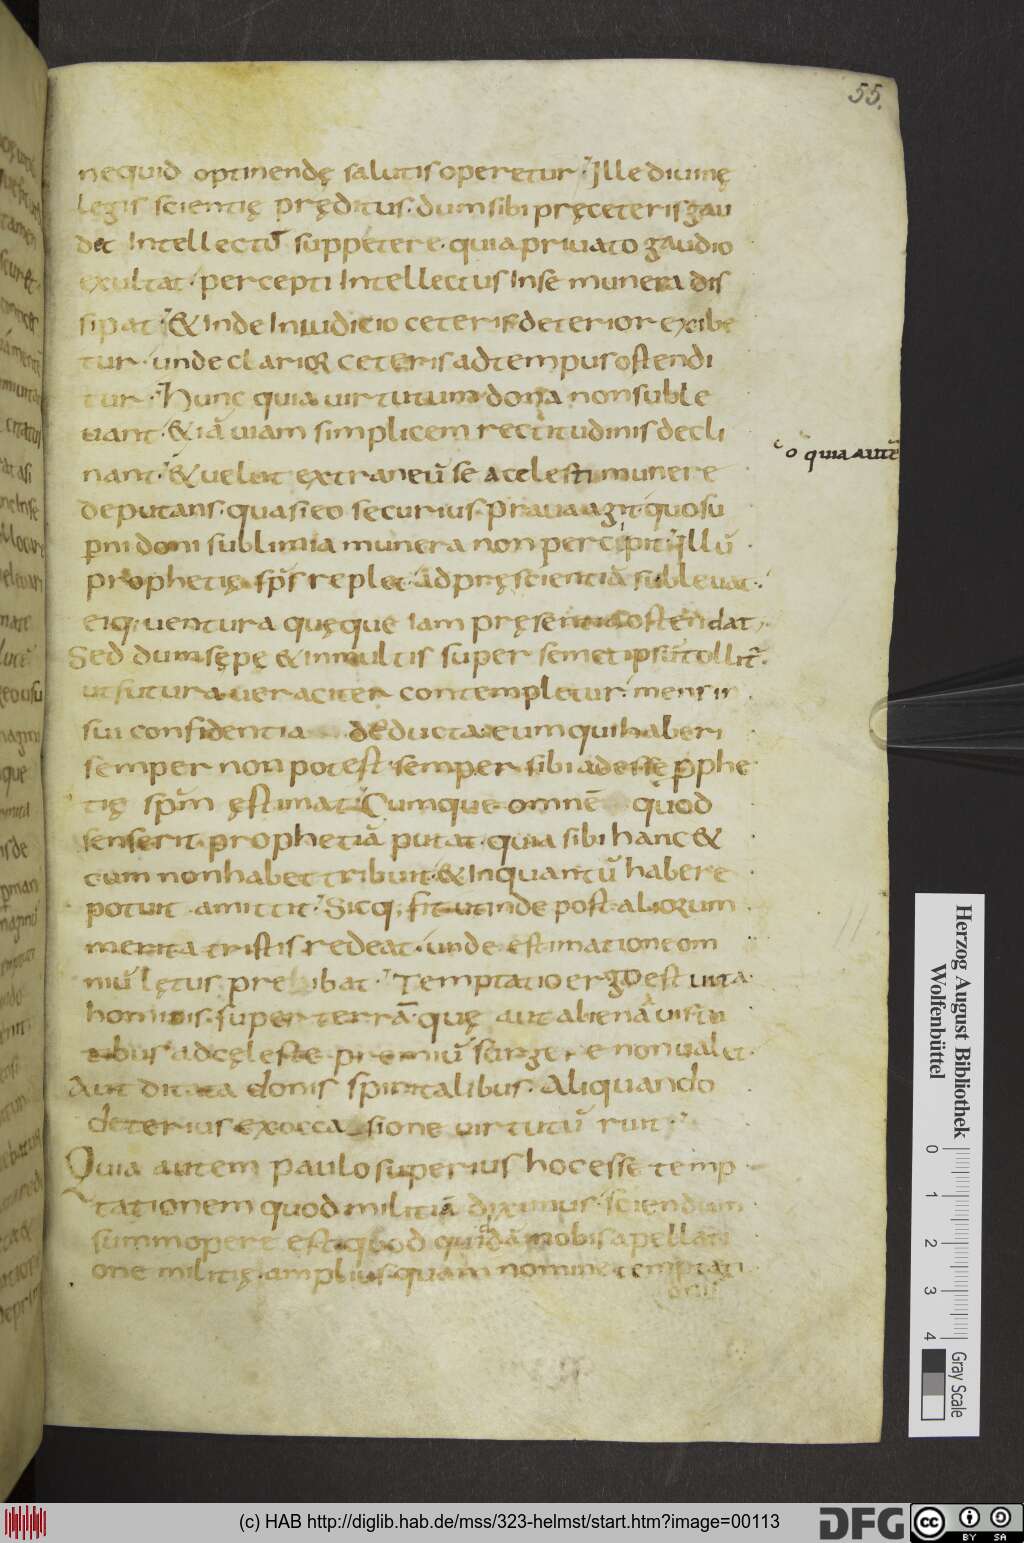 55.
nequid optinendę salutis operetur. Ille diuinę
legis scientię pręditus. dum sibi pręceteris gau
det Intellectū suppetere. quia priuato gaudio
exultat. percepti Intellectus Inse munera dis
sipat. & Inde Iniudicio ceteris deterior exibe
tur. unde clarior ceteris adtempus ostendi
tur. Hunc quia uirtutum dona non suble
uant. & iā uiam simplicem rectitudinis decli
nant. & uelut extraneū se a celesti munere
co quia autē
deputans. quasi eo securius. praua agit. quo su
p̄ni doni sublimia munera non percipit. Illū
prophetię sp̄s replet. ad pręscientiā subleuat.
eiq; uentura quęque iam pręsentia ostendat,
Sed dum sępę & in multis super semetipsū tollit̄.
ut futura ueraciter contempletur. mens in
sui confidentia deducta. eum qui haberi
semper non potest. semper sibi adesse p̄phe
tię sp̄m ęstimat. Cumque omnē quod
senserit. prophetiā putat. quia sibi hanc &
cum non habet tribuit. & Inquantū habere
potuit amittit. Sicq; fit ut inde post aliorum
merita tristis redeat. unde estimatione om
niū lętus preibat. Temptatio ergo est uita
hominis. super terrā. quę aut aliena uirtu
tibus ad cęleste premiū surgere non ualet.
Aut ditata donis spiritalibus. Aliquando
deterius ex occasione uirtutū ruit.
Quia autem paulo superius hoc esse temp
tationem quod militiā diximus. sciendum
summopere est. quod quiddā nobis apellati
one militię. amplius quam nomine temptati
onis
Herzog August Bibliothek
Wolfenbüttel
0 1 2 3 4
Gray Scale
(c) HAB http://diglib.hab.de/mss/323-helmst/start.htm?image=00113
DFG
cc BY SA